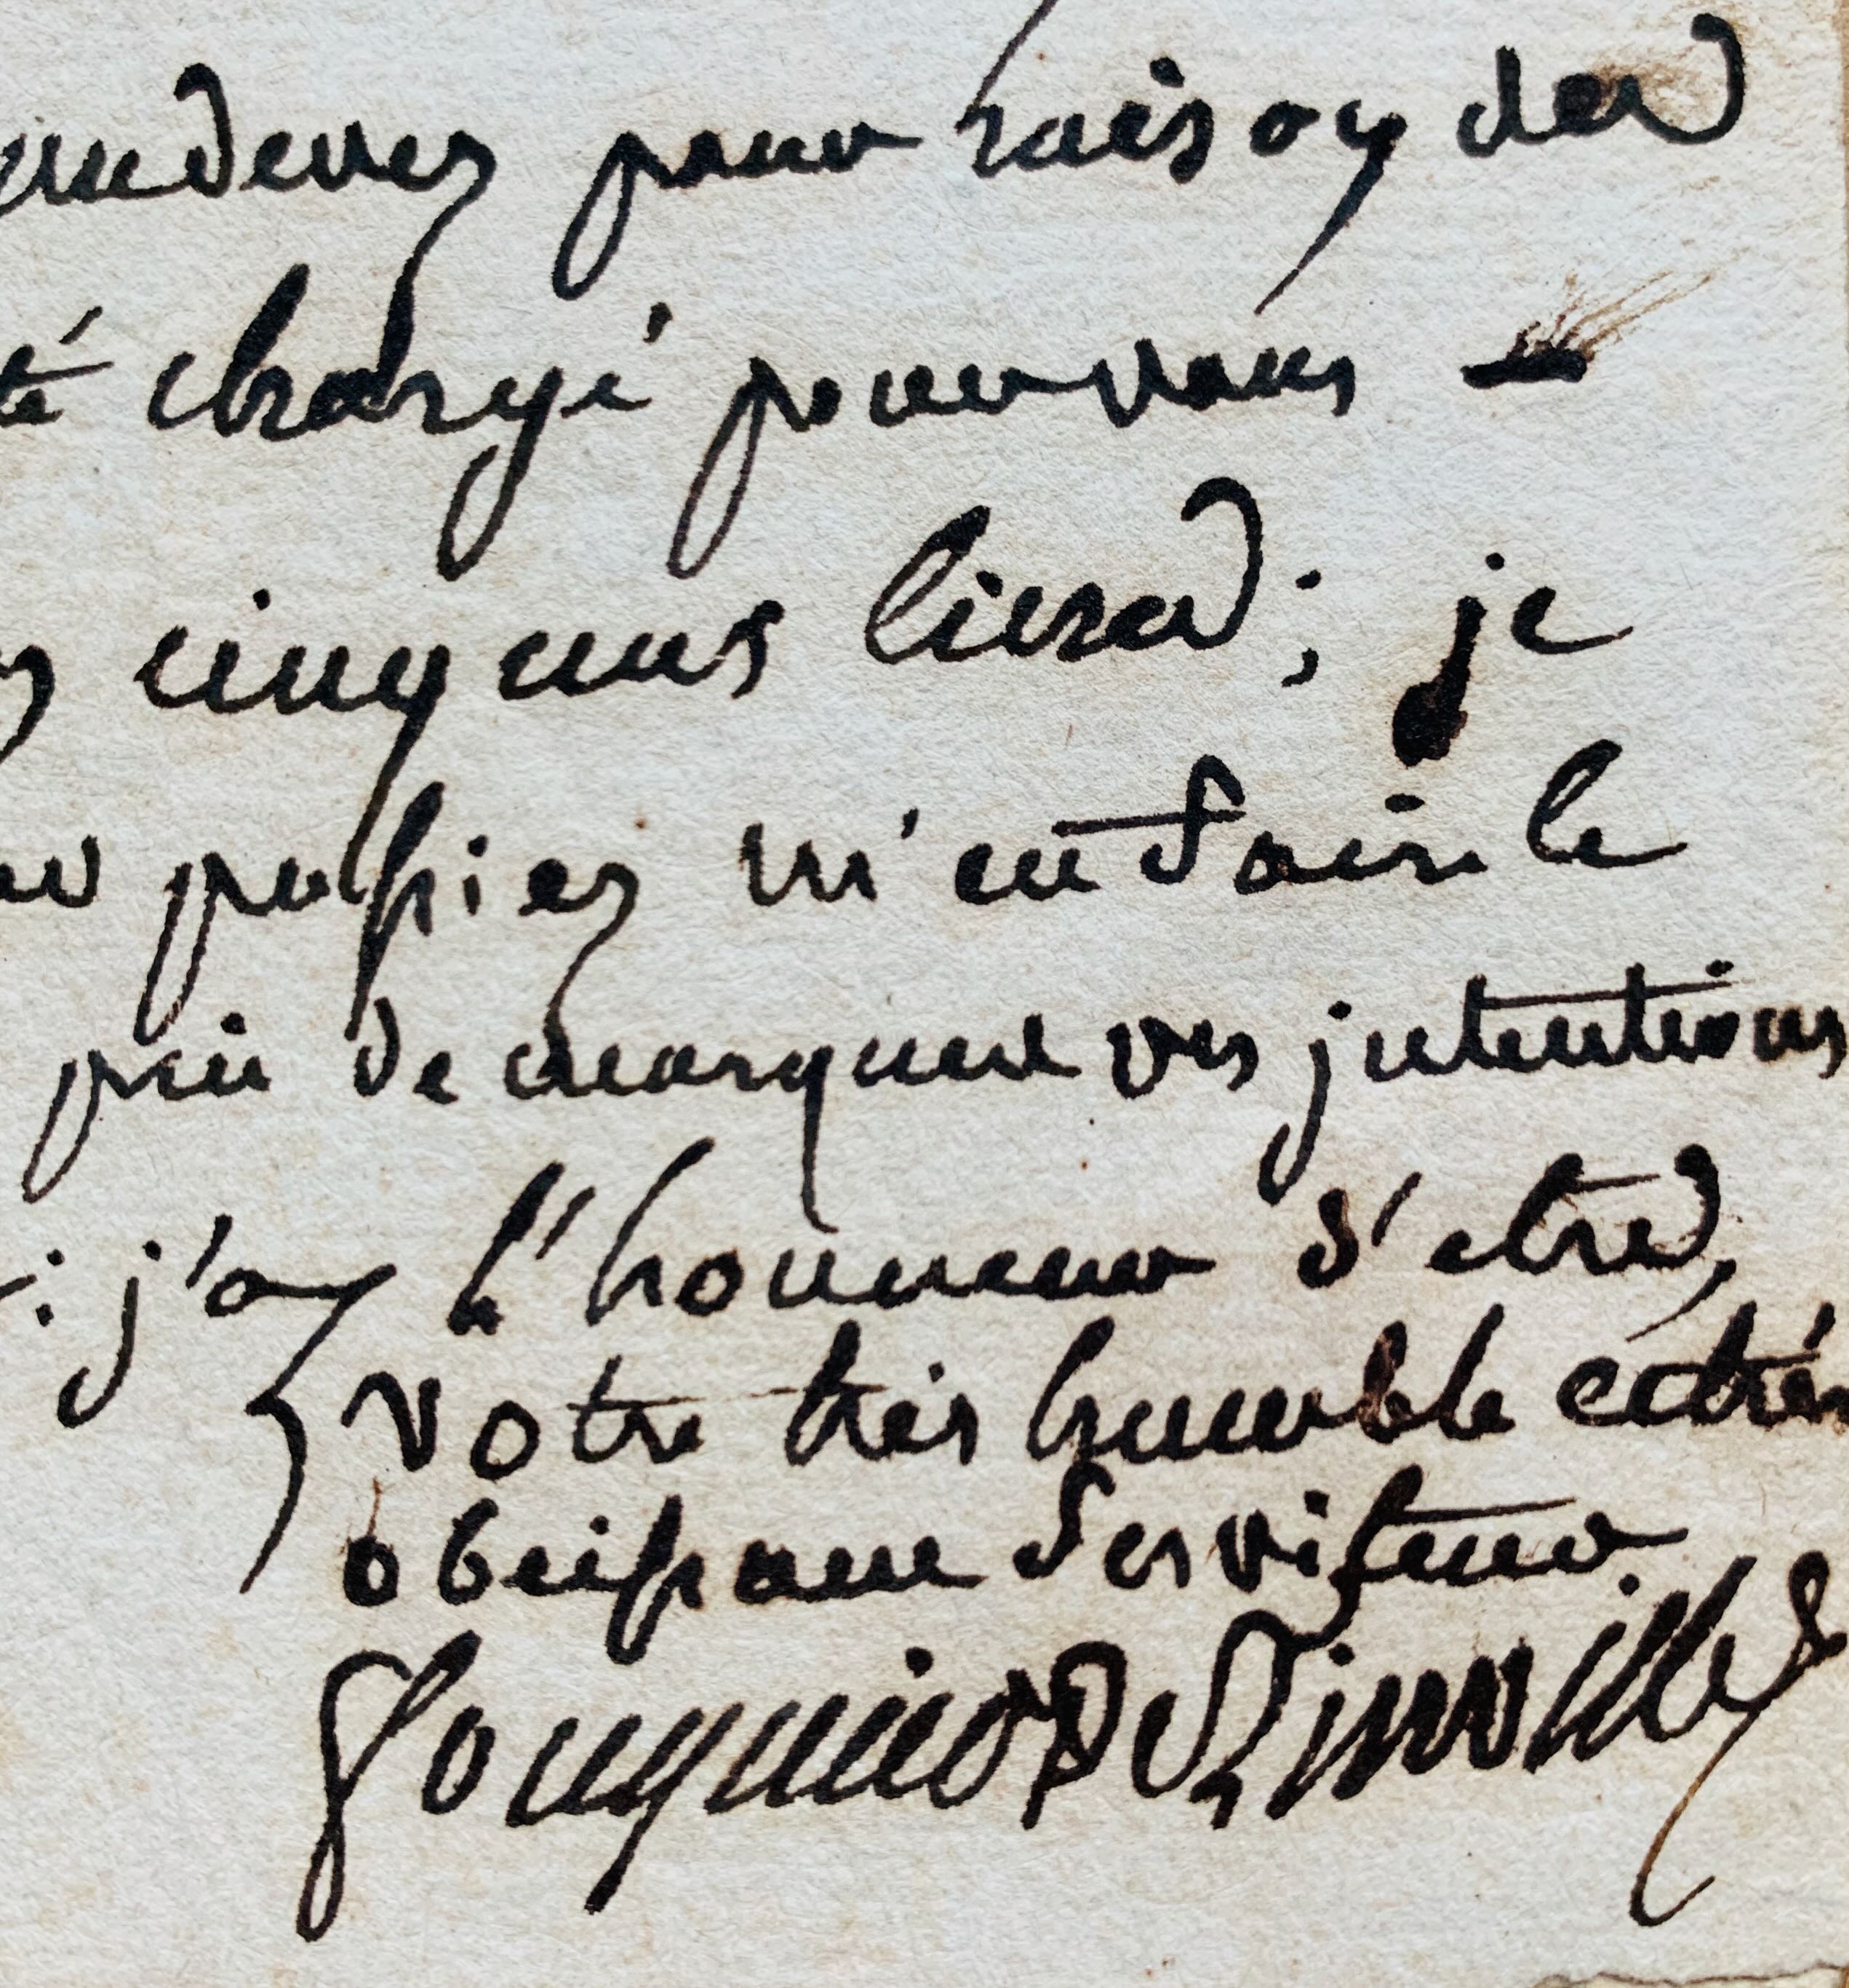 me devez pour raison des
té chargé pour vous -
cinq cens livres ; je
pussiez m'en faire le
prie de marquer vos jntentions
: j'ay l'honneur d'etre,
Votre très humble et très
obeissant Serviteur.
Fouquier De Tinville